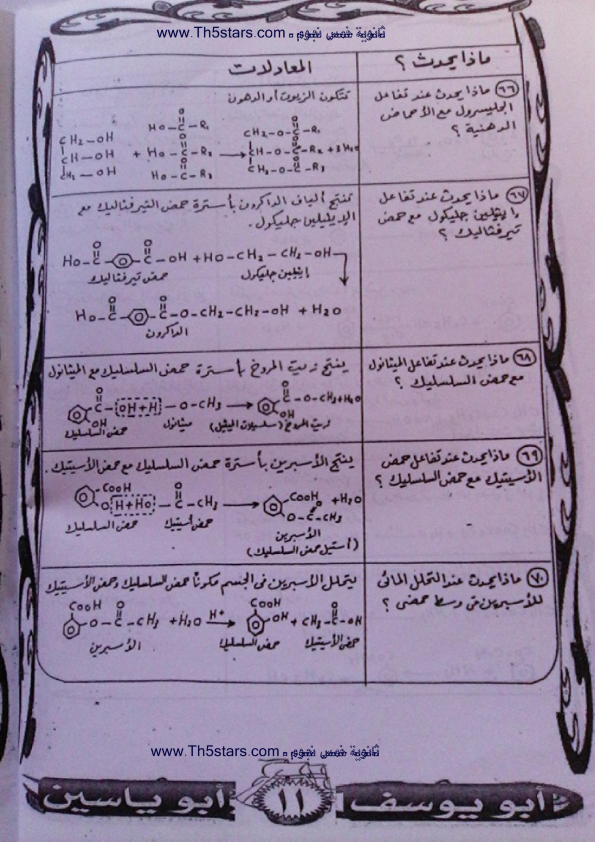 ثانوية خمس نجوم - www.Th5stars.com
ماذا يحدث ؟
المعادلات
٦٦ ماذا يحدث عند تفاعل
الجليسرول مع الأحماض
الدهنية ؟
تتكون الزيوت أو الدهون
CH₂-OH
CH-OH
CH₂-OH
+
HO-C-R₁
HO-C-R₂
HO-C-R₃
CH₂-O-C-R₁
CH-O-C-R₂ + 3H₂O
CH₂-O-C-R₃
٦٧ ماذا يحدث عند تفاعل
الإيثيلين جليكول مع حمض
تيرفثاليك ؟
تنتج ألياف الداكرون بأسترة حمض التيرفثاليك مع
الإيثيلين جليكول.
HO-C C-OH + HO-CH₂-CH₂-OH
حمض تيرفثاليك
إيثيلين جليكول
HO-C C-O-CH₂-CH₂-OH + H₂O
الداكرون
٦٨ ماذا يحدث عند تفاعل الميثانول
مع حمض السلسليك ؟
ينتج زيت المروخ بأسترة حمض السلسليك مع الميثانول
C OH+H -O-CH₃ → C-O-CH₃+H₂O
OH OH
حمض السلسليك
ميثانول
زيت المروخ (سلسيلات الميثيل)
٦٩ ماذا يحدث عند تفاعل حمض
الأسيتيك مع حمض السلسليك ؟
ينتج الأسبرين بأسترة حمض السلسليك مع حمض الأسيتيك.
COOH COOH
O H+HO -C-CH₃ → O-C-CH₃ +H₂O
حمض السلسليك
حمض أسيتيك
الأسبرين
(أستيل حمض السلسليك)
٧٠ ماذا يحدث عند التحلل المائى
للأسبرين فى وسط حمضى ؟
يتحلل الأسبرين فى الجسم مكوناً حمض السلسليك وحمض الأسيتيك
COOH COOH
O-C-CH₃ +H₂O H⁺→ OH + CH₃-C-OH
الأسبرين
حمض السلسليك
حمض الأسيتيك
ثانوية خمس نجوم - www.Th5stars.com
أبو يوسف
١١
أبو ياسين